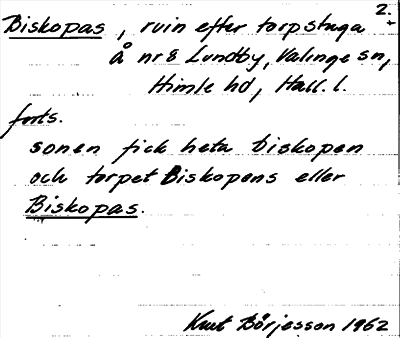 2.
Biskopas, ruin efter torpstuga
å nr 8 Lundby, Valinge sn,
Himle hd, Hall. l.
forts.
sonen fick heta biskopen
och torpet Biskopens eller
Biskopas.
Kurt Börjesson 1962